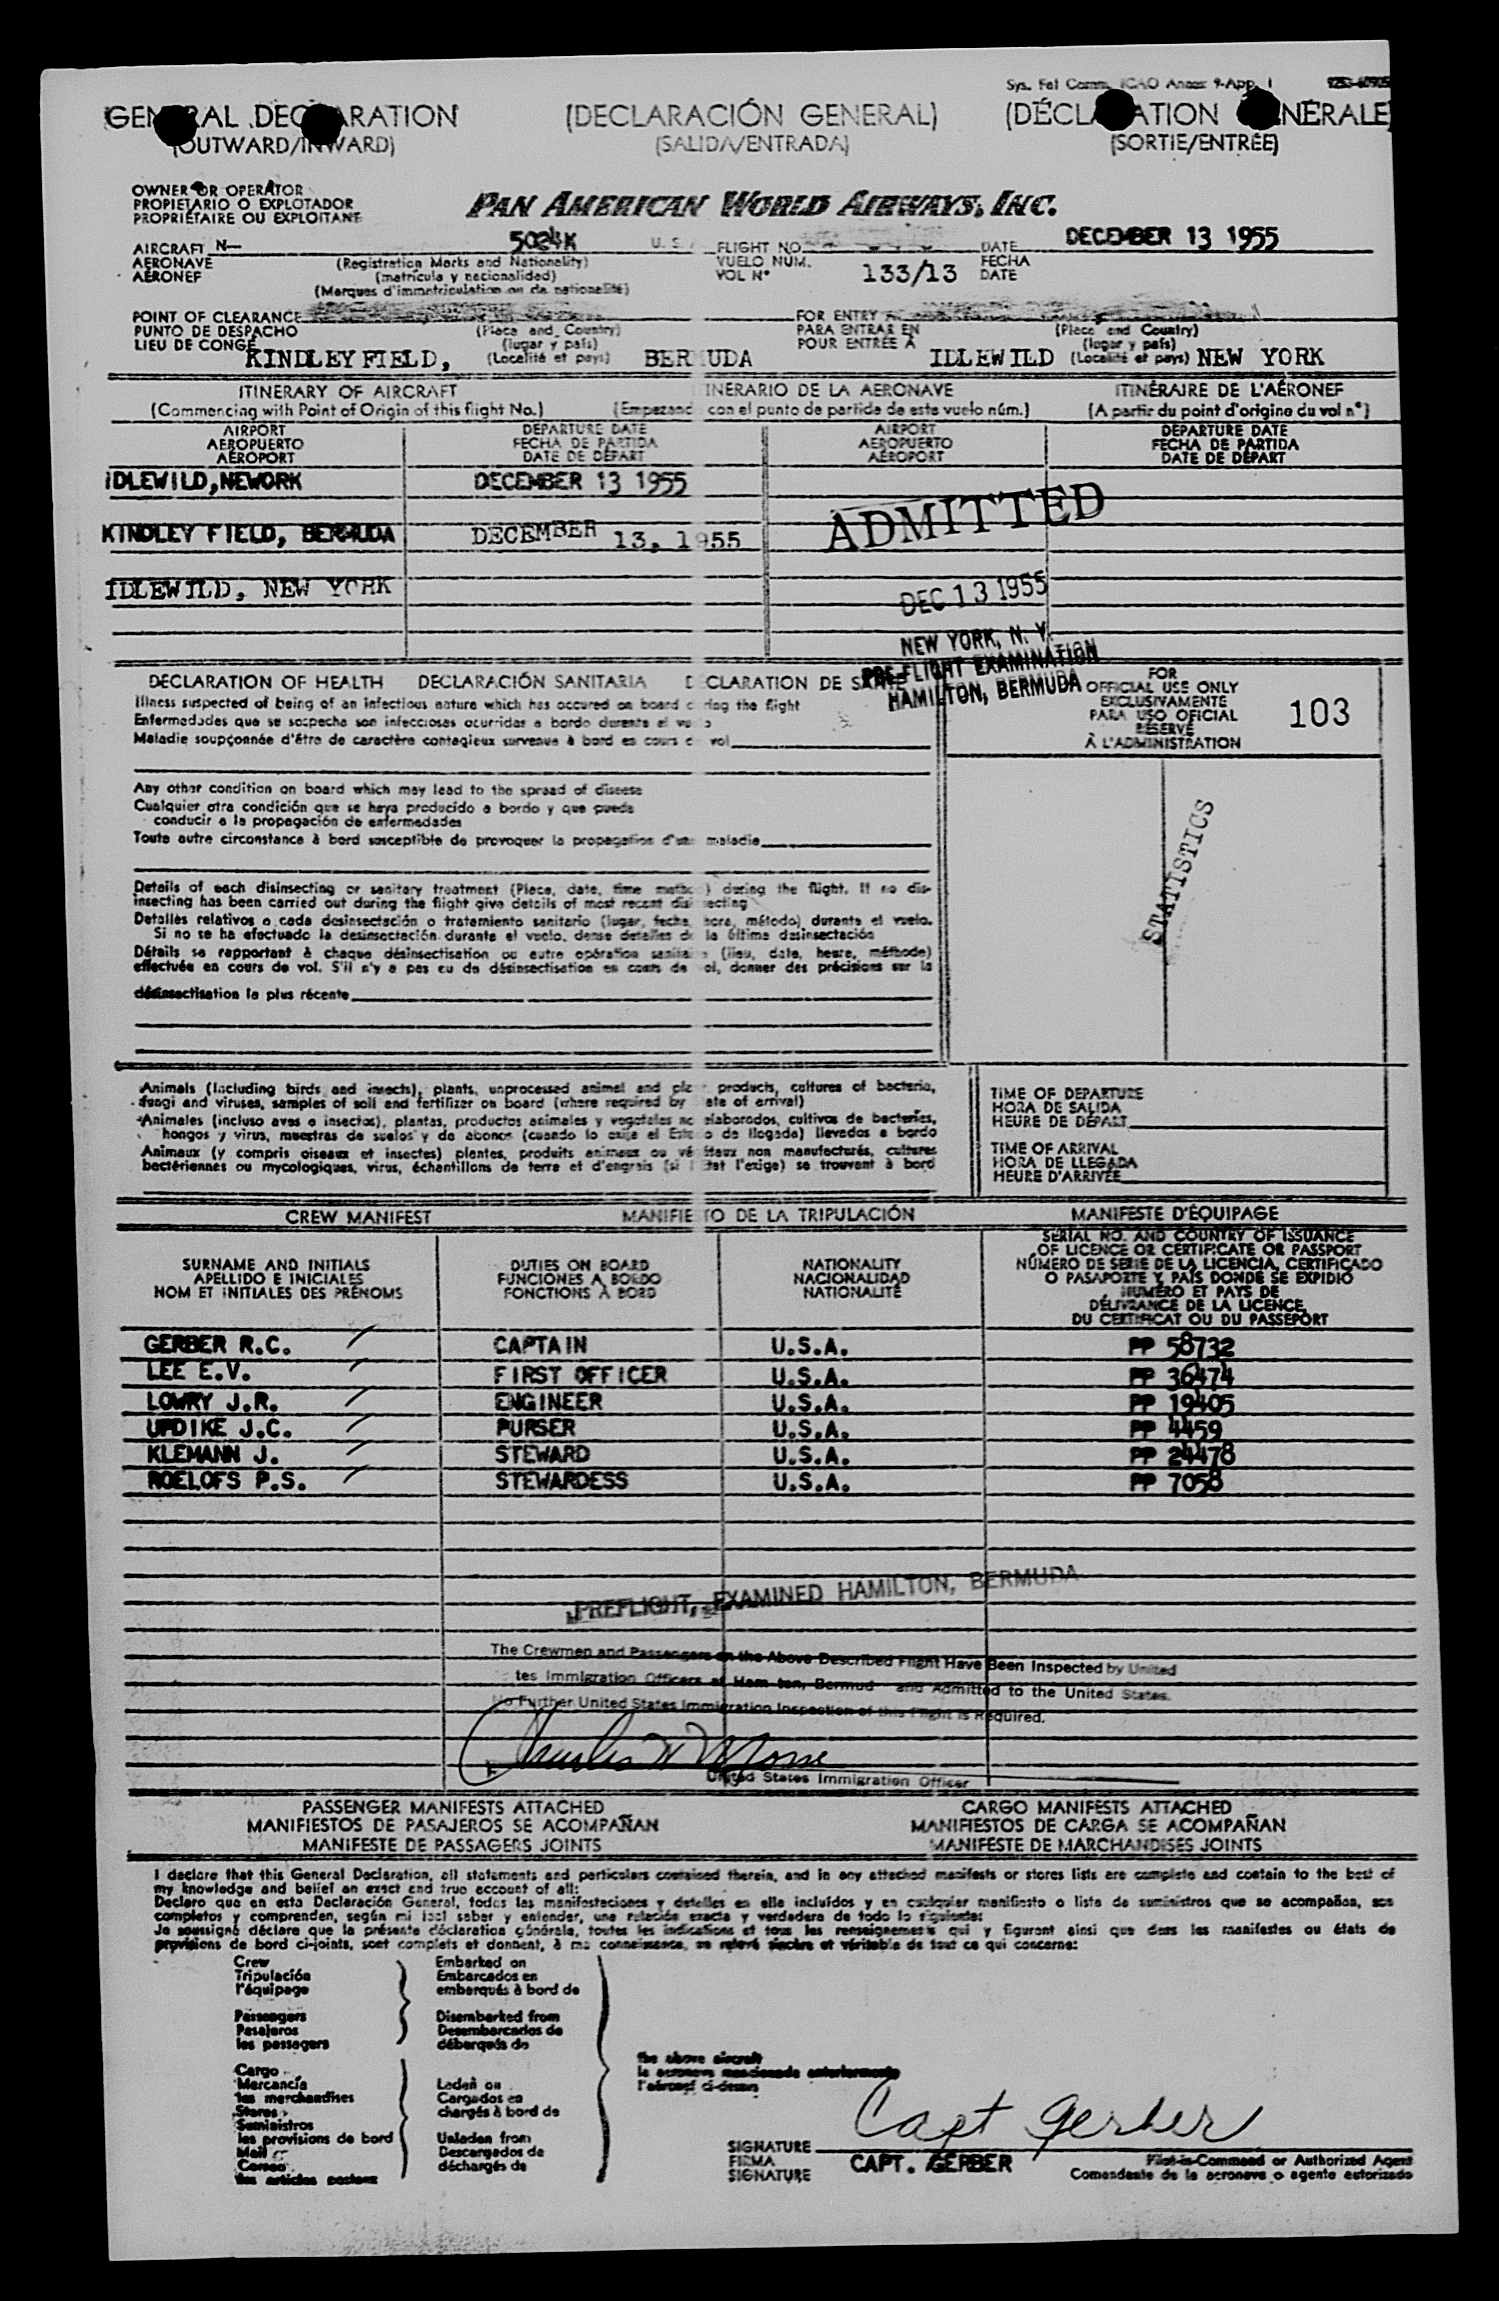 Sys. Fel Comm. ICAO Annex 9-App. 1
GENERAL DECLARATION (DECLARACIÓN GENERAL) (DÉCLARATION GÉNÉRALE)
(OUTWARD/INWARD) (SALIDA/ENTRADA) (SORTIE/ENTRÉE)
OWNER OR OPERATOR
PROPIETARIO O EXPLOTADOR
PROPRIÉTAIRE OU EXPLOITANT
PAN AMERICAN WORLD AIRWAYS, INC.
AIRCRAFT N— 5024K U. S. FLIGHT NO. DATE DECEMBER 13 1955
AERONAVE (Registration Marks and Nationality) VUELO NUM. 133/13 FECHA
AÉRONEF (matrícula y nacionalidad) VOL Nº DATE
(Marques d'immatriculation ou de nationalité)
POINT OF CLEARANCE FOR ENTRY
PUNTO DE DESPACHO (Place and Country) PARA ENTRAR EN (Place and Country)
LIEU DE CONGÉ (lugar y país) POUR ENTRÉE À (lugar y país)
KINDLEY FIELD, (Localité et pays) BERMUDA IDLEWILD (Localité et pays) NEW YORK
ITINERARY OF AIRCRAFT INERARIO DE LA AERONAVE ITINÉRAIRE DE L'AÉRONEF
(Commencing with Point of Origin of this flight No.) (Empezand con el punto de partida de este vuelo núm.) (A partir du point d'origine du vol nº)
AIRPORT DEPARTURE DATE AIRPORT DEPARTURE DATE
AEROPUERTO FECHA DE PARTIDA AEROPUERTO FECHA DE PARTIDA
AÉROPORT DATE DE DÉPART AÉROPORT DATE DE DÉPART
IDLEWILD,NEWORK DECEMBER 13 1955
ADMITTED
KINDLEY FIELD, BERMUDA DECEMBER 13, 1955
IDLEWILD, NEW YORK
DEC 13 1955
NEW YORK, N. Y.
PRE-FLIGHT EXAMINATION
HAMILTON, BERMUDA
DECLARATION OF HEALTH DECLARACIÓN SANITARIA D CLARATION DE SANTÉ
Illness suspected of being of an infectious nature which has occured on board during the flight
Enfermedades que se sospecha son infecciosas ocurridas a bordo durante el vuelo
Maladie soupçonnée d'être de caractère contagieux survenue à bord en cours de vol
FOR
OFFICIAL USE ONLY
EXCLUSIVAMENTE
PARA USO OFICIAL
RÉSERVÉ
À L'ADMINISTRATION
103
Any other condition on board which may lead to the spread of disease
Cualquier otra condición que se haya producido a bordo y que pueda
conducir a la propagación de enfermedades
Toute autre circonstance à bord susceptible de provoquer la propagation d'une maladie
STATISTICS
Details of each disinsecting or sanitary treatment (Place, date, time method) during the flight. If no dis-
insecting has been carried out during the flight give details of most recent disinsecting
Detalles relativos a cada desinsectación o tratamiento sanitario (lugar, fecha, hora, método) durante el vuelo.
Si no se ha efectuado la desinsectación durante el vuelo, dense detalles de la última desinsectación
Détails se rapportant à chaque désinsectisation ou autre opération sanitaire (lieu, date, heure, méthode)
effectuée en cours de vol. S'il n'y a pas eu de désinsectisation en cours de vol, donner des précisions sur la
désinsectisation la plus récente
Animals (Including birds and insects), plants, unprocessed animal and pla products, cultures of bacteria,
fungi and viruses, samples of soil and fertilizer on board (where required by ate of arrival)
Animales (incluso aves e insectos), plantas, productos animales y vegetales no elaborados, cultivos de bacterias,
hongos y virus, muestras de suelos y de abonos (cuando lo exija el Estado de llegada) llevados a bordo
Animaux (y compris oiseaux et insectes) plantes, produits animaux ou végétaux non manufacturés, cultures
bactériennes ou mycologiques, virus, échantillons de terre et d'engrais (si l'état l'exige) se trouvant à bord
TIME OF DEPARTURE
HORA DE SALIDA
HEURE DE DÉPART
TIME OF ARRIVAL
HORA DE LLEGADA
HEURE D'ARRIVÉE
CREW MANIFEST MANIFIESTO DE LA TRIPULACIÓN MANIFESTE D'ÉQUIPAGE
SURNAME AND INITIALS
APELLIDO E INICIALES
NOM ET INITIALES DES PRÉNOMS
DUTIES ON BOARD
FUNCIONES A BORDO
FONCTIONS À BORD
NATIONALITY
NACIONALIDAD
NATIONALITÉ
SERIAL NO. AND COUNTRY OF ISSUANCE
OF LICENCE OR CERTIFICATE OR PASSPORT
NÚMERO DE SERIE DE LA LICENCIA, CERTIFICADO
O PASAPORTE Y PAÍS DONDE SE EXPIDIÓ
NUMÉRO ET PAYS DE
DÉLIVRANCE DE LA LICENCE,
DU CERTIFICAT OU DU PASSEPORT
GERBER R.C. CAPTAIN U.S.A. PP 58732
LEE E.V. FIRST OFFICER U.S.A. PP 36474
LOWRY J.R. ENGINEER U.S.A. PP 19405
UPDIKE J.C. PURSER U.S.A. PP 4459
KLEMANN J. STEWARD U.S.A. PP 24478
ROELOFS P.S. STEWARDESS U.S.A. PP 7058
PREFLIGHT, EXAMINED HAMILTON, BERMUDA
The Crewmen and Passengers on the Above Described Flight Have Been Inspected by United
tes Immigration Officers at Ham ton, Bermud and Admitted to the United States.
No Further United States Immigration Inspection of this Flight is Required.
Charles W Morse
United States Immigration Officer
PASSENGER MANIFESTS ATTACHED CARGO MANIFESTS ATTACHED
MANIFIESTOS DE PASAJEROS SE ACOMPAÑAN MANIFIESTOS DE CARGA SE ACOMPAÑAN
MANIFESTE DE PASSAGERS JOINTS MANIFESTE DE MARCHANDISES JOINTS
I declare that this General Declaration, all statements and particulars contained therein, and in any attached manifests or stores lists are complete and contain to the best of
my knowledge and belief an exact and true account of all:
Declaro que en esta Declaración General, todas las manifestaciones y detalles en ella incluídos y en cualquier manifiesto o lista de suministros que se acompañan, son
completos y comprenden, según mi leal saber y entender, una relación exacta y verdadera de todo lo siguiente:
Je soussigné déclare que la présente déclaration générale, toutes les indications et tous les renseignements qui y figurent ainsi que dans les manifestes ou états de
provisions de bord ci-joints, sont complets et donnent, à ma connaissance, un relevé sincère et véritable de tout ce qui concerne:
Crew Embarked on
Tripulación Embarcados en
l'équipage embarqués à bord de
Passengers Disembarked from
Pasajeros Desembarcados de
les passagers débarqués de
the above aircraft
la aeronave mencionada anteriormente
l'aéronef ci-dessus
Cargo
Mercancía Laden on
les marchandises Cargados en
Stores chargés à bord de
Suministros
les provisions de bord Unladen from
Mail Descargados de
Correo déchargés de
les articles postaux
Capt Gerber
SIGNATURE
FIRMA CAPT. GERBER Pilot-in-Command or Authorized Agent
SIGNATURE Comandante de la aeronave o agente autorizado